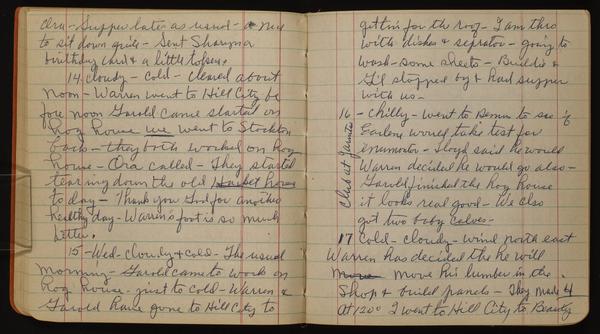 Ora - Supper later as usual - a
to sit down - Sent Sharyn a
birthday card & a little
14 cloudy - cold - cleared about
noon - Warren went to Hill City be
fore noon Harold came started on
hog house we went to Stockton
back - they both worked on hog
house - Ora called - They started
tearing down the old
to day - Thank you God for another
healthy day - Warren's foot is so much
better.
15 - Wed - Cloudy & cold - The usual
morning - Harold came to work on
hog house - just to cold - Warren &
Harold have gone to Hill City to
gettin for the roof - I am thro
with dishes & seprator - going to
wash - some sheets - Buddie &
stopped by & had supper
with us -
16 - chilly - went to see if
Earlene would take test for
enumator - Lloyd said he would
Warren decided he would go also -
Harold finished the hog house
it looks real good - We also
got two baby calves -
Club at
17 Cold - cloudy - wind north east
Warren has decided the he will
move move his lumber in the
Shop & build panels - They made 4
At 1200 I went to Hill City to Beauty